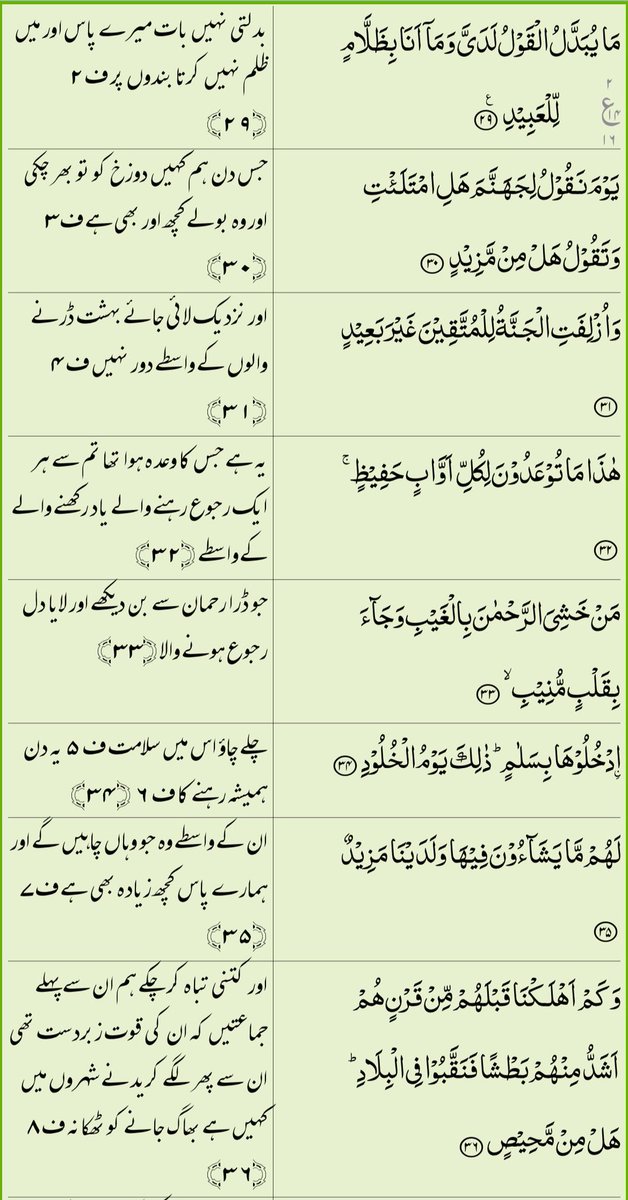 مَا يُبَدَّلُ الْقَوْلُ لَدَىَّ وَمَآ اَنَا بِظَلَّامٍ
لِّلْعَبِيْدِ ﴿۲۹﴾ ع
۲
ع ۱۴
۱۶
بدلتی نہیں بات میرے پاس اور میں
ظلم نہیں کرتا بندوں پر ف ۲
﴿۲۹﴾
يَوْمَ نَقُوْلُ لِجَهَنَّمَ هَلِ امْتَلَئْتِ
وَتَقُوْلُ هَلْ مِنْ مَّزِيْدٍ ﴿۳۰﴾
جس دن ہم کہیں دوزخ کو تو بھر چکی
اور وہ بولے کچھ اور بھی ہے ف ۳
﴿۳۰﴾
وَاُزْلِفَتِ الْجَنَّةُ لِلْمُتَّقِيْنَ غَيْرَ بَعِيْدٍ
﴿۳۱﴾
اور نزدیک لائی جائے بہشت ڈرنے
والوں کے واسطے دور نہیں ف ۴
﴿۳۱﴾
هٰذَا مَا تُوْعَدُوْنَ لِكُلِّ اَوَّابٍ حَفِيْظٍ ۚ
﴿۳۲﴾
یہ ہے جس کا وعدہ ہوا تھا تم سے ہر
ایک رجوع رہنے والے یاد رکھنے والے
کے واسطے ﴿۳۲﴾
مَنْ خَشِىَ الرَّحْمٰنَ بِالْغَيْبِ وَجَآءَ
بِقَلْبٍ مُّنِيْبِ ۙ ﴿۳۳﴾
جو ڈرا رحمان سے بن دیکھے اور لایا دل
رجوع ہونے والا ﴿۳۳﴾
اۨدْخُلُوْهَا بِسَلٰمٍ ؕ ذٰلِكَ يَوْمُ الْخُلُوْدِ ﴿۳۴﴾
چلے جاؤ اس میں سلامت ف ۵ یہ دن
ہمیشہ رہنے کا ف ۶ ﴿۳۴﴾
لَهُمْ مَّا يَشَآءُوْنَ فِيْهَا وَلَدَيْنَا مَزِيْدٌ
﴿۳۵﴾
ان کے واسطے وہ جو وہاں چاہیں گے اور
ہمارے پاس کچھ زیادہ بھی ہے ف ۷
﴿۳۵﴾
وَكَمْ اَهْلَكْنَا قَبْلَهُمْ مِّنْ قَرْنٍ هُمْ
اَشَدُّ مِنْهُمْ بَطْشًا فَنَقَّبُوْا فِى الْبِلَادِ ؕ
هَلْ مِنْ مَّحِيْصٍ ﴿۳۶﴾
اور کتنی تباہ کر چکے ہم ان سے پہلے
جماعتیں کہ ان کی قوت زبردست تھی
ان سے پھر لگے کریدنے شہروں میں
کہیں ہے بھاگ جانے کو ٹھکانہ ف ۸
﴿۳۶﴾